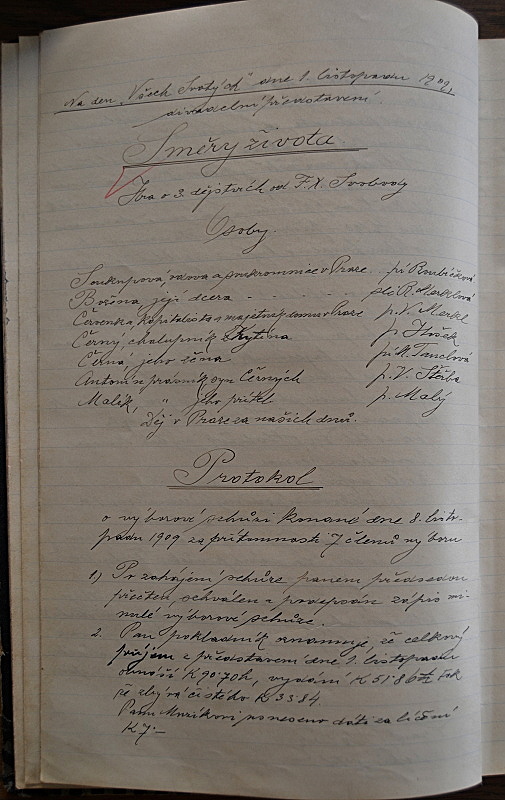 Na den „Všech Svatých" dne 1. listopadu 1909,
divadelní představení.
Směry života
Hra v 3. dějstvích od F. X. Svobody
Osoby.
Soukupová, vdova a soukromnice v Praze . . pí Roubíčková
Božena její dcera - . . . . . slč. R. Merklová
Červenka, kapitalista a majetník domu v Praze p. V. Merkl
Černý, chalupník z Kytína p. Hošek
Černá, jeho žena pí M. Tanclová
Antonín právník syn Černých p. V. Štěrba
Malík, „ jeho přítel p. Malý
Děj v Praze za našich dnů.
Protokol
o výborové schůzi konané dne 8. listo-
padu 1909 za přítomnosti 7 členů výboru
1) Po zahájení schůze panem předsedou
přečten, schválen a podepsán zápis mi-
nulé výborové schůze.
2. Pan pokladník oznamuje, že celkový
příjem z představení dne 1. listopadu
obnáší K 90·70h, vydání K 51·86 tak
že zbývá čistého K 38·84.
Panu Mazíkovi usneseno dáti za líčení
K 7·—